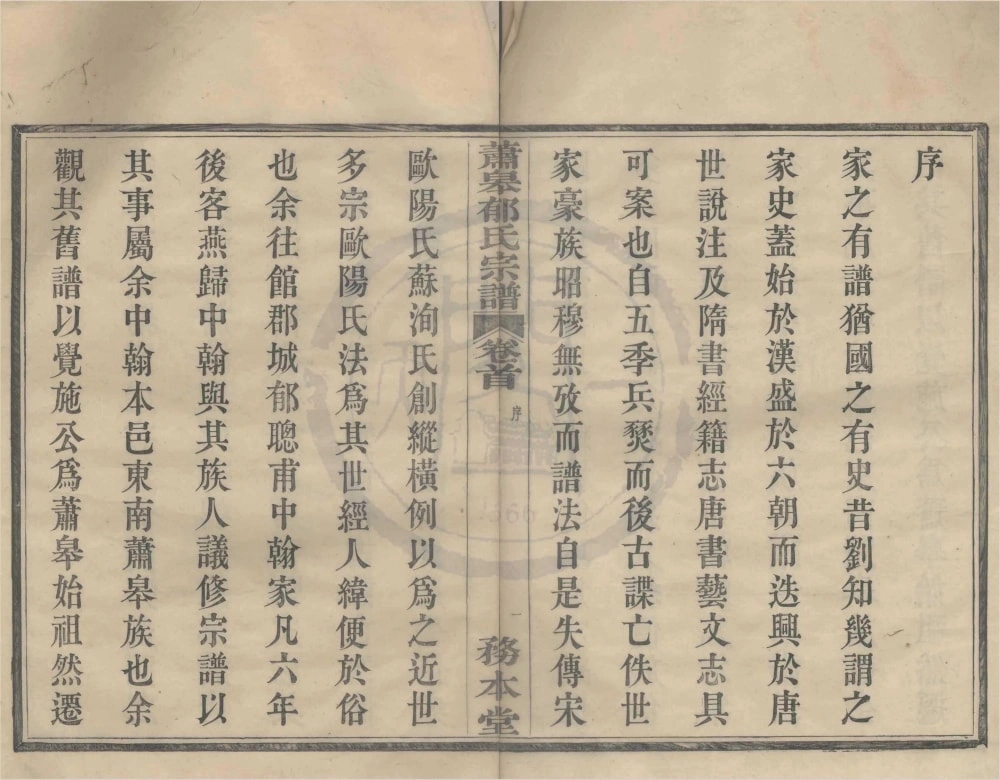 序
家之有譜猶國之有史昔劉知幾謂之
家史蓋始於漢盛於六朝而迭興於唐
世說注及隋書經籍志唐書藝文志具
可案也自五季兵燹而後古諜亡佚世
家豪族昭穆無攷而譜法自是失傳宋
蕭皋郁氏宗譜 卷首 序 一 務本堂
歐陽氏蘇洵氏創縱橫例以爲之近世
多宗歐陽氏法爲其世經人緯便於俗
也余往館郡城郁聰甫中翰家凡六年
後客燕歸中翰與其族人議修宗譜以
其事屬余中翰本邑東南蕭皋族也余
觀其舊譜以覺施公爲蕭皋始祖然遷